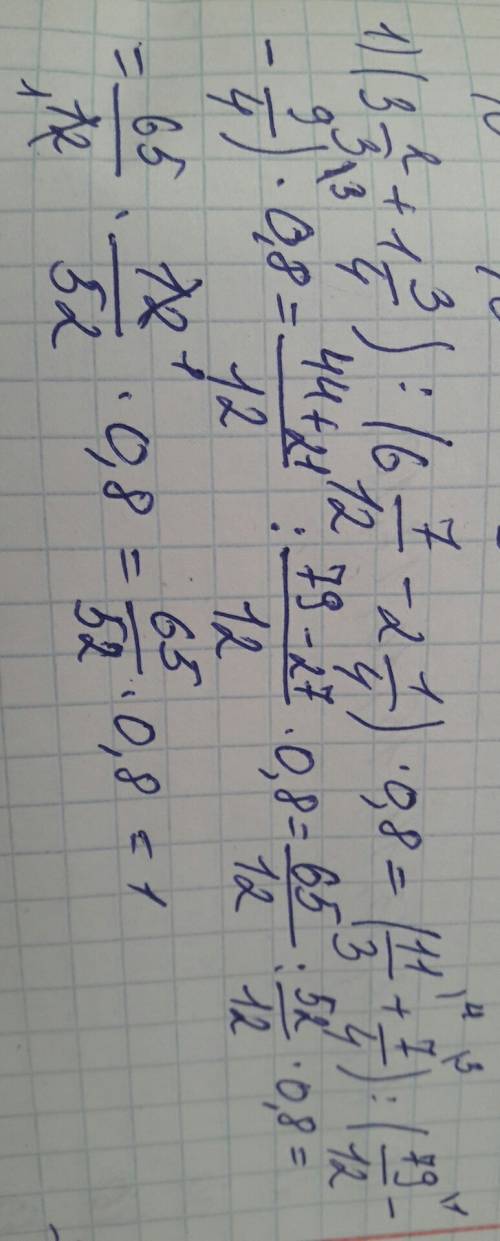 1) (3 2/3 + 1 3/4) : (6 7/12 - 2 1/4) · 0,8 = (11/3 \4 + 7/4 \3) : (79/12 \1 -
- 9/4 \3) · 0,8 = 44+21/12 : 79-27/12 · 0,8 = 65/12 : 52/12 · 0,8 =
= 65/12 1 · 12 1/52 · 0,8 = 65/52 · 0,8 = 1